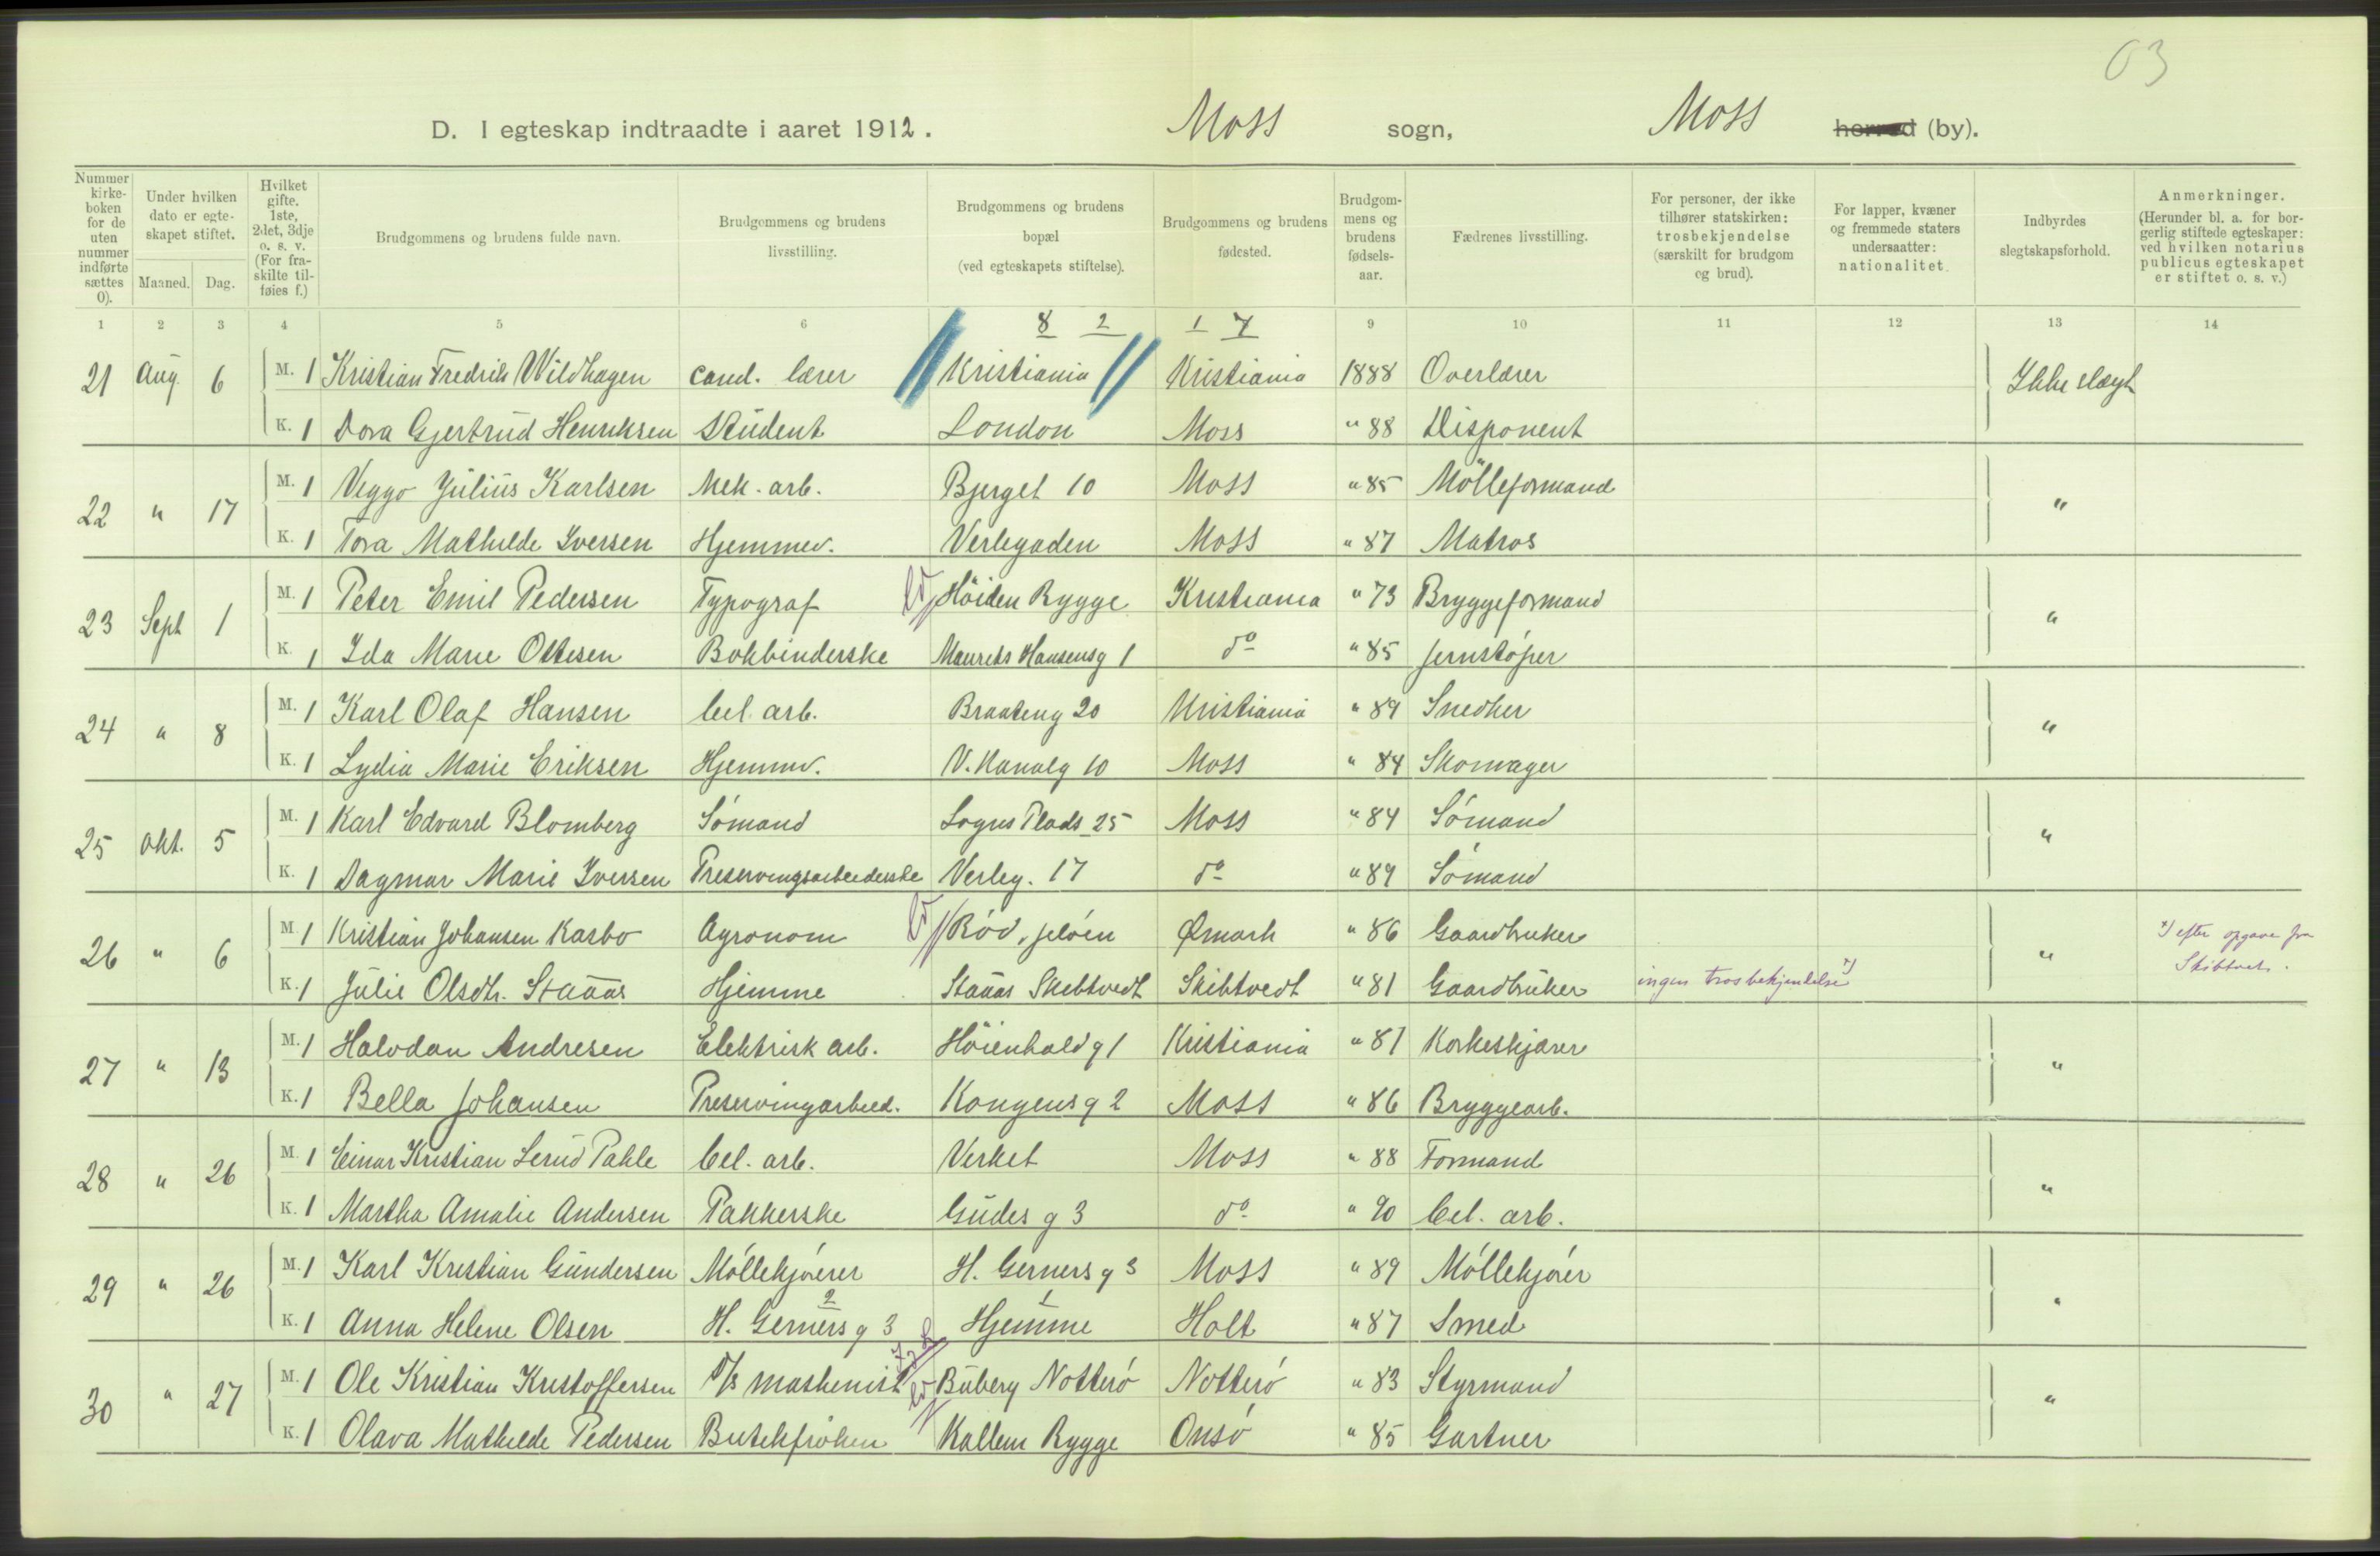 03
D. I egteskap indtraadte i aaret 1912. Moss sogn, Moss herred (by).
Nummer kirkeboken for de uten nummer indførte sættes 0). | Under hvilken dato er egteskapet stiftet. Maaned. Dag. | Hvilket gifte. 1ste, 2det, 3dje o. s. v. (For fraskilte tilføies f.) | Brudgommens og brudens fulde navn. | Brudgommens og brudens livsstilling. | Brudgommens og brudens bopæl (ved egteskapets stiftelse). | Brudgommens og brudens fødested. | Brudgommens og brudens fødselsaar. | Fædrenes livsstilling. | For personer, der ikke tilhører statskirken: trosbekjendelse (særskilt for brudgom og brud). | For lapper, kvæner og fremmede staters undersaatter: nationalitet. | Indbyrdes slegtskapsforhold. | Anmerkninger. (Herunder bl. a. for borgerlig stiftede egteskaper: ved hvilken notarius publicus egteskapet er stiftet o. s. v.)
1 2 3 4 5 6 8 2 1 7 9 10 11 12 13 14
21 Aug. 6 M. 1 Kristian Fredrik Wildhagen cand. lærer Kristiania Kristiania 1888 Overlærer Ikke slægt
K. 1 Dora Gjertrud Henriksen Student London Moss " 88 Disponent
22 " 17 M. 1 Veggo Julius Karlsen Mek. arb. Bjerget 10 Moss " 85 Mölleformand "
K. 1 Tora Mathilde Iversen Hjemmev. Verlegaden Moss " 87 Matros
23 Sept 1 M. 1 Peter Emil Pedersen Typograf Höiden Rygge Kristiania " 73 Bryggeformand "
K. 1 Ida Marie Ottesen Bokbinderske Maurits Hansensg 1 do " 85 Jernstöper
24 " 8 M. 1 Karl Olaf Hansen Cel. arb. Braateng 20 Kristiania " 89 Snedker "
K. 1 Lydia Marie Eriksen Hjemmv. V. Kanalg 10 Moss " 84 Skomager
25 Okt. 5 M. 1 Karl Edvard Blomberg Sömand Logns Plads 25 Moss " 84 Sömand "
K. 1 Dagmar Marie Iversen Preservingsarbeiderske Verleg. 17 do " 89 Sömand
26 " 6 M. 1 Kristian Johansen Karbo Agronom Röd, Jelöen Ømark " 86 Gaardbruker " *) efter opgave fra
K. 1 Julie Olsdtr. Staaas Hjemme Staaas Skibtvedt Skibtvedt " 81 Gaardbruker ingen trosbekjendelse *) Skibtvet.
27 " 13 M. 1 Halvdan Andresen Elektrisk arb. Höienhaldg 1 Kristiania " 81 Korkeskjærer "
K. 1 Bella Johansen Preservingarbeid. Kongensg 2 Moss " 86 Bryggearb.
28 " 26 M. 1 Einar Kristian Lerud Pahle Cel. arb. Verket Moss " 88 Formand "
K. 1 Martha Amalie Andersen Pakkerske Gudes g 3 do " 90 Cel. arb.
29 " 26 M. 1 Karl Kristian Gundersen Möllekjörer H. Gerners g 3 Moss " 89 Möllekjörer "
K. 1 Anna Helene Olsen H. Gerners g 3 2 Hjemme 1 Holt " 87 Smed
30 " 27 M. 1 Ole Kristian Kristoffersen D/s maskenist Buberg Notterö Notterö " 83 Styrmand "
K. 1 Olava Mathilde Pedersen Butikfröken Kallum Rygge Onsö " 85 Gartner